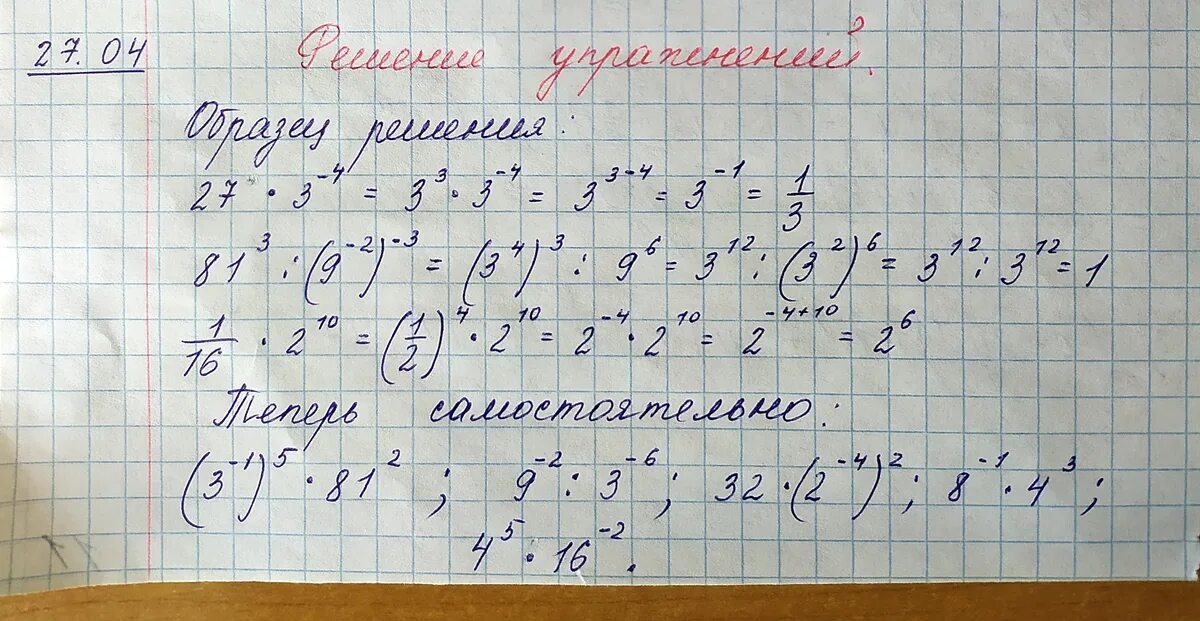 27.04 Решение упражнений.
Образец решения:
27 · 3⁻⁴ = 3³ · 3⁻⁴ = 3³⁻⁴ = 3⁻¹ = 1/3
81³ : (9⁻²)⁻³ = (3⁴)³ : 9⁶ = 3¹² : (3²)⁶ = 3¹² : 3¹² = 1
1/16 · 2¹⁰ = (1/2)⁴ · 2¹⁰ = 2⁻⁴ · 2¹⁰ = 2⁻⁴⁺¹⁰ = 2⁶
Теперь самостоятельно:
(3⁻¹)⁵ · 81² ; 9⁻² : 3⁻⁶ ; 32 · (2⁻⁴)² ; 8⁻¹ · 4³ ;
4⁵ · 16⁻² .